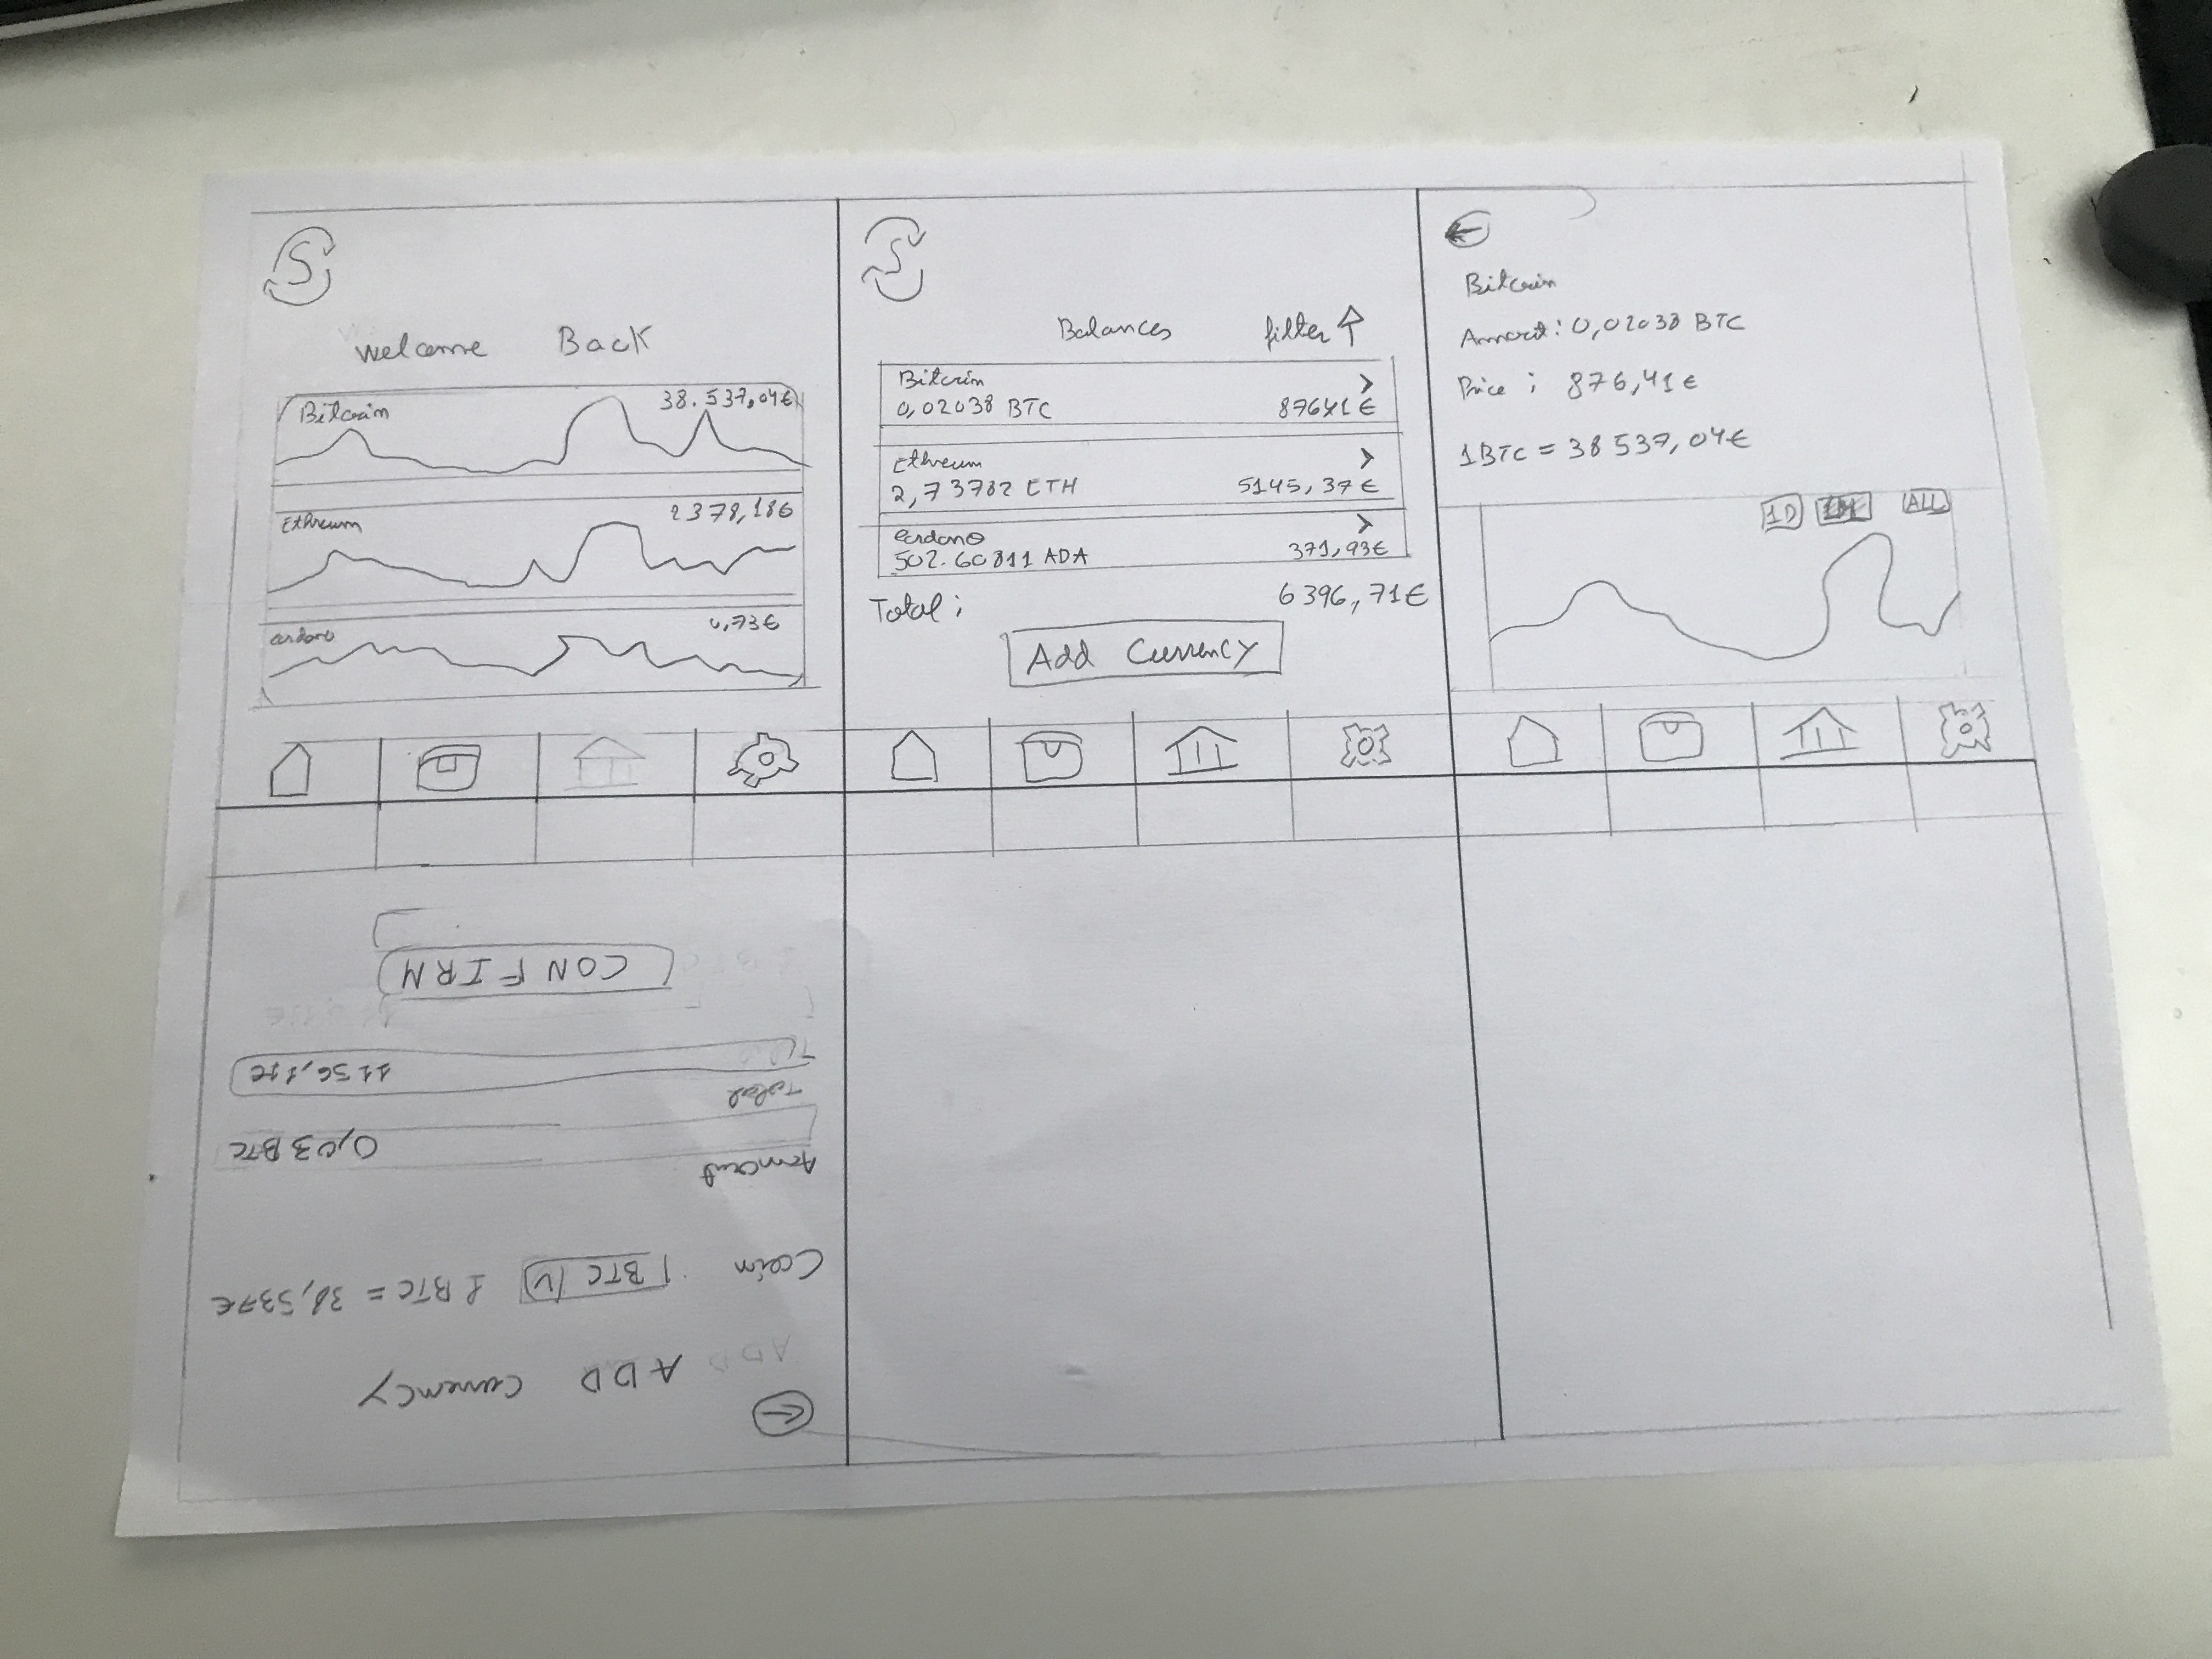 Welcome Back
Bitcoin 38.537,04€
Ethreum 2378,18€
0,73€
Balances filter
Bitcoin
0,02038 BTC
Ethreum
2,73782 ETH 5145,37€
502.60811 ADA 371,93€
Total: 6396,71€
Add Currency
Bitcoin
Amount: 0,02038 BTC
Price: 876,41€
1BTC = 38537,04€
1D 1M ALL
ADD Currency
Coin BTC 1 BTC = 38,537€
Amount
0,03 BTC
Total
1156,11€
CONFIRM